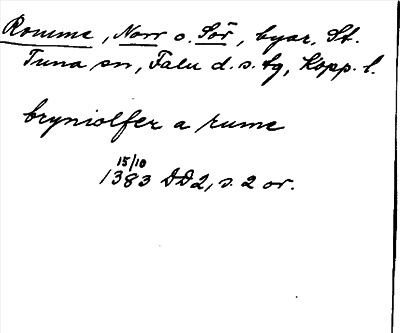 Romme, Norr o. Sör, byar, St.
Tuna sn, Falu d. s. tg, Kopp. l.
bryniolfer a rume
15/10
1383 DD2, s. 2 or.